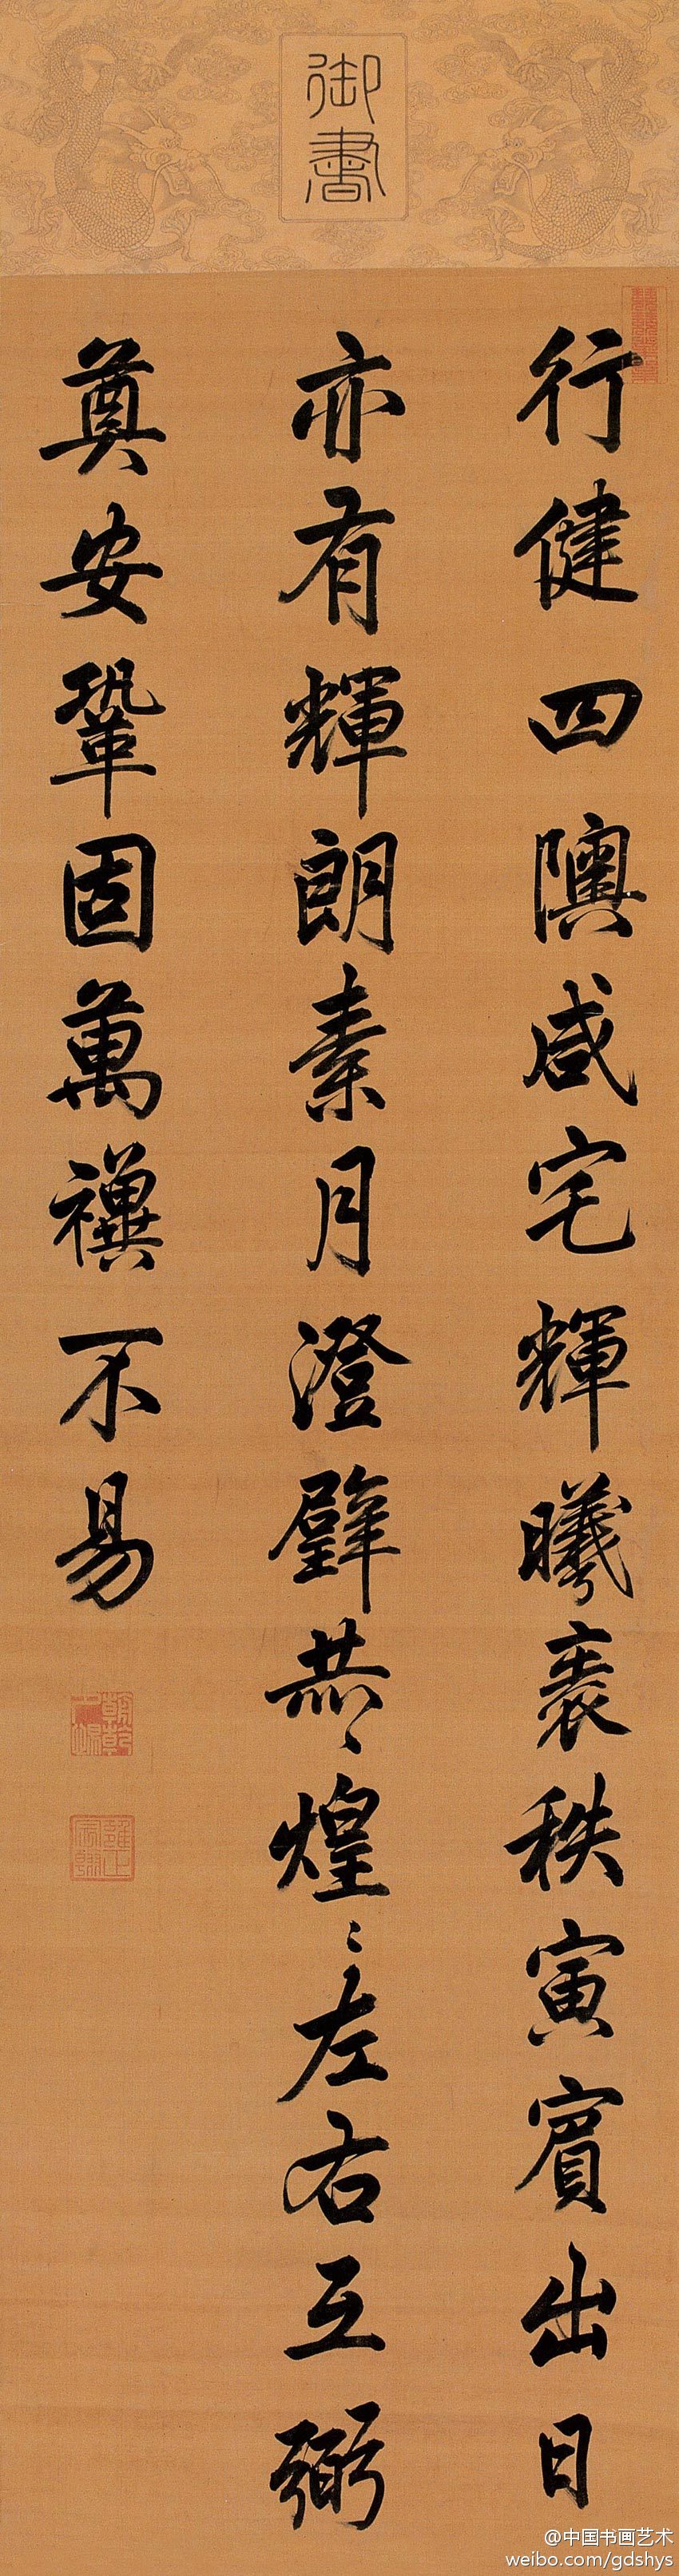 御書
行健四隩咸宅輝曦秩寅賓出日
亦有輝朗素月澄璧煌〻左右互弼
奠安鞏固萬禩不易
朝乾夕惕
雍正宸翰
@中国书画艺术
weibo.com/gdshys